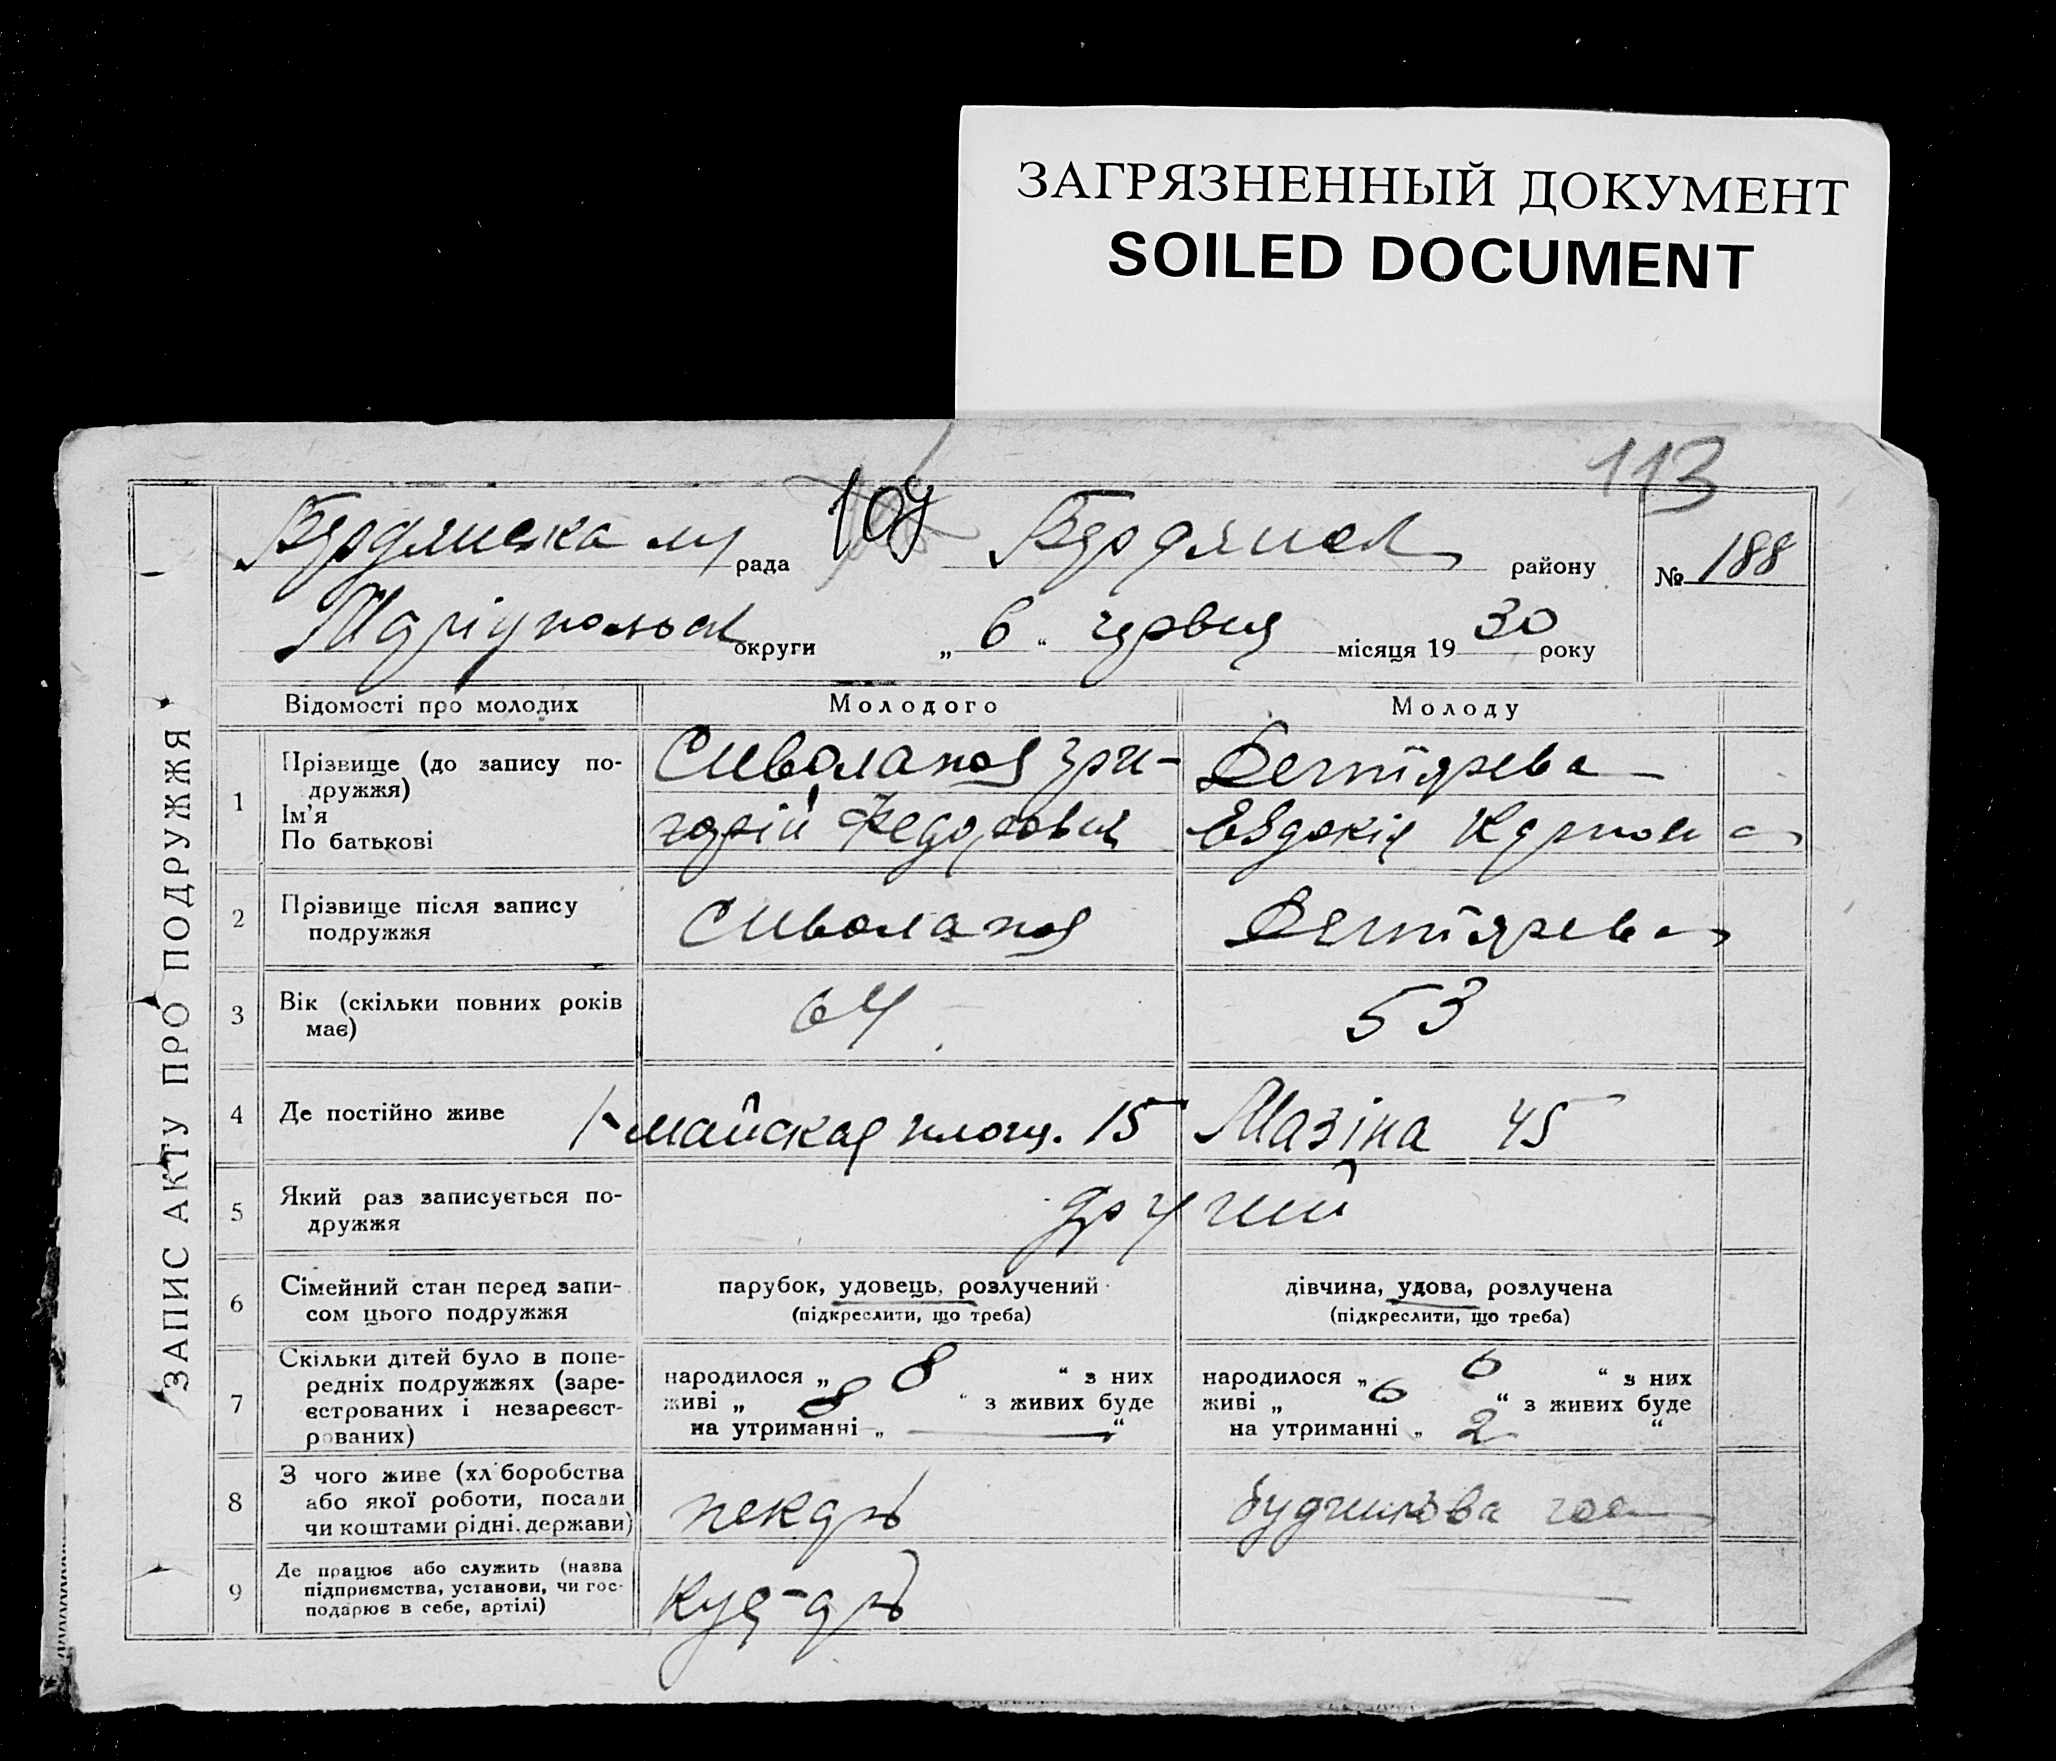 ЗАГРЯЗНЕННЫЙ ДОКУМЕНТ
SOILED DOCUMENT
113
Бердянська рада 104 Бердянськ району
№ 188
Маріупольськ округи „ 6 “ червня місяця 1930 року
ЗАПИС АКТУ ПРО ПОДРУЖЖЯ
Відомості про молодих Молодого Молоду
1 Прізвище (до запису по-
дружжя)
Ім'я
По батькові
Сиволапов Гри-
горій Федорович
Дегтярева
Евдокія Карповна
2 Прізвище після запису
подружжя
Сиволапов
Дегтярева
3 Вік (скільки повних років
має)
64
53
4 Де постійно живе
1-майская площ. 15
Мазіна 45
5 Який раз записується по-
дружжя
другий
6 Сімейний стан перед запи-
сом цього подружжя
парубок, удовець, розлучений
(підкреслити, що треба)
дівчина, удова, розлучена
(підкреслити, що треба)
7 Скільки дітей було в попе-
редніх подружжях (заре-
єстрованих і незареєст-
рованих)
народилося „ 8 “ з них
живі „ 8 “ з живих буде
на утриманні „ — “
народилося „ 6 “ з них
живі „ 6 “ з живих буде
на утриманні „ 2 “
8 З чого живе (хліборобства
або якої роботи, посади
чи коштами рідні, держави)
пекарь
9 Де працює або служить (назва
підприємства, установи, чи гос-
подарює в себе, артілі)